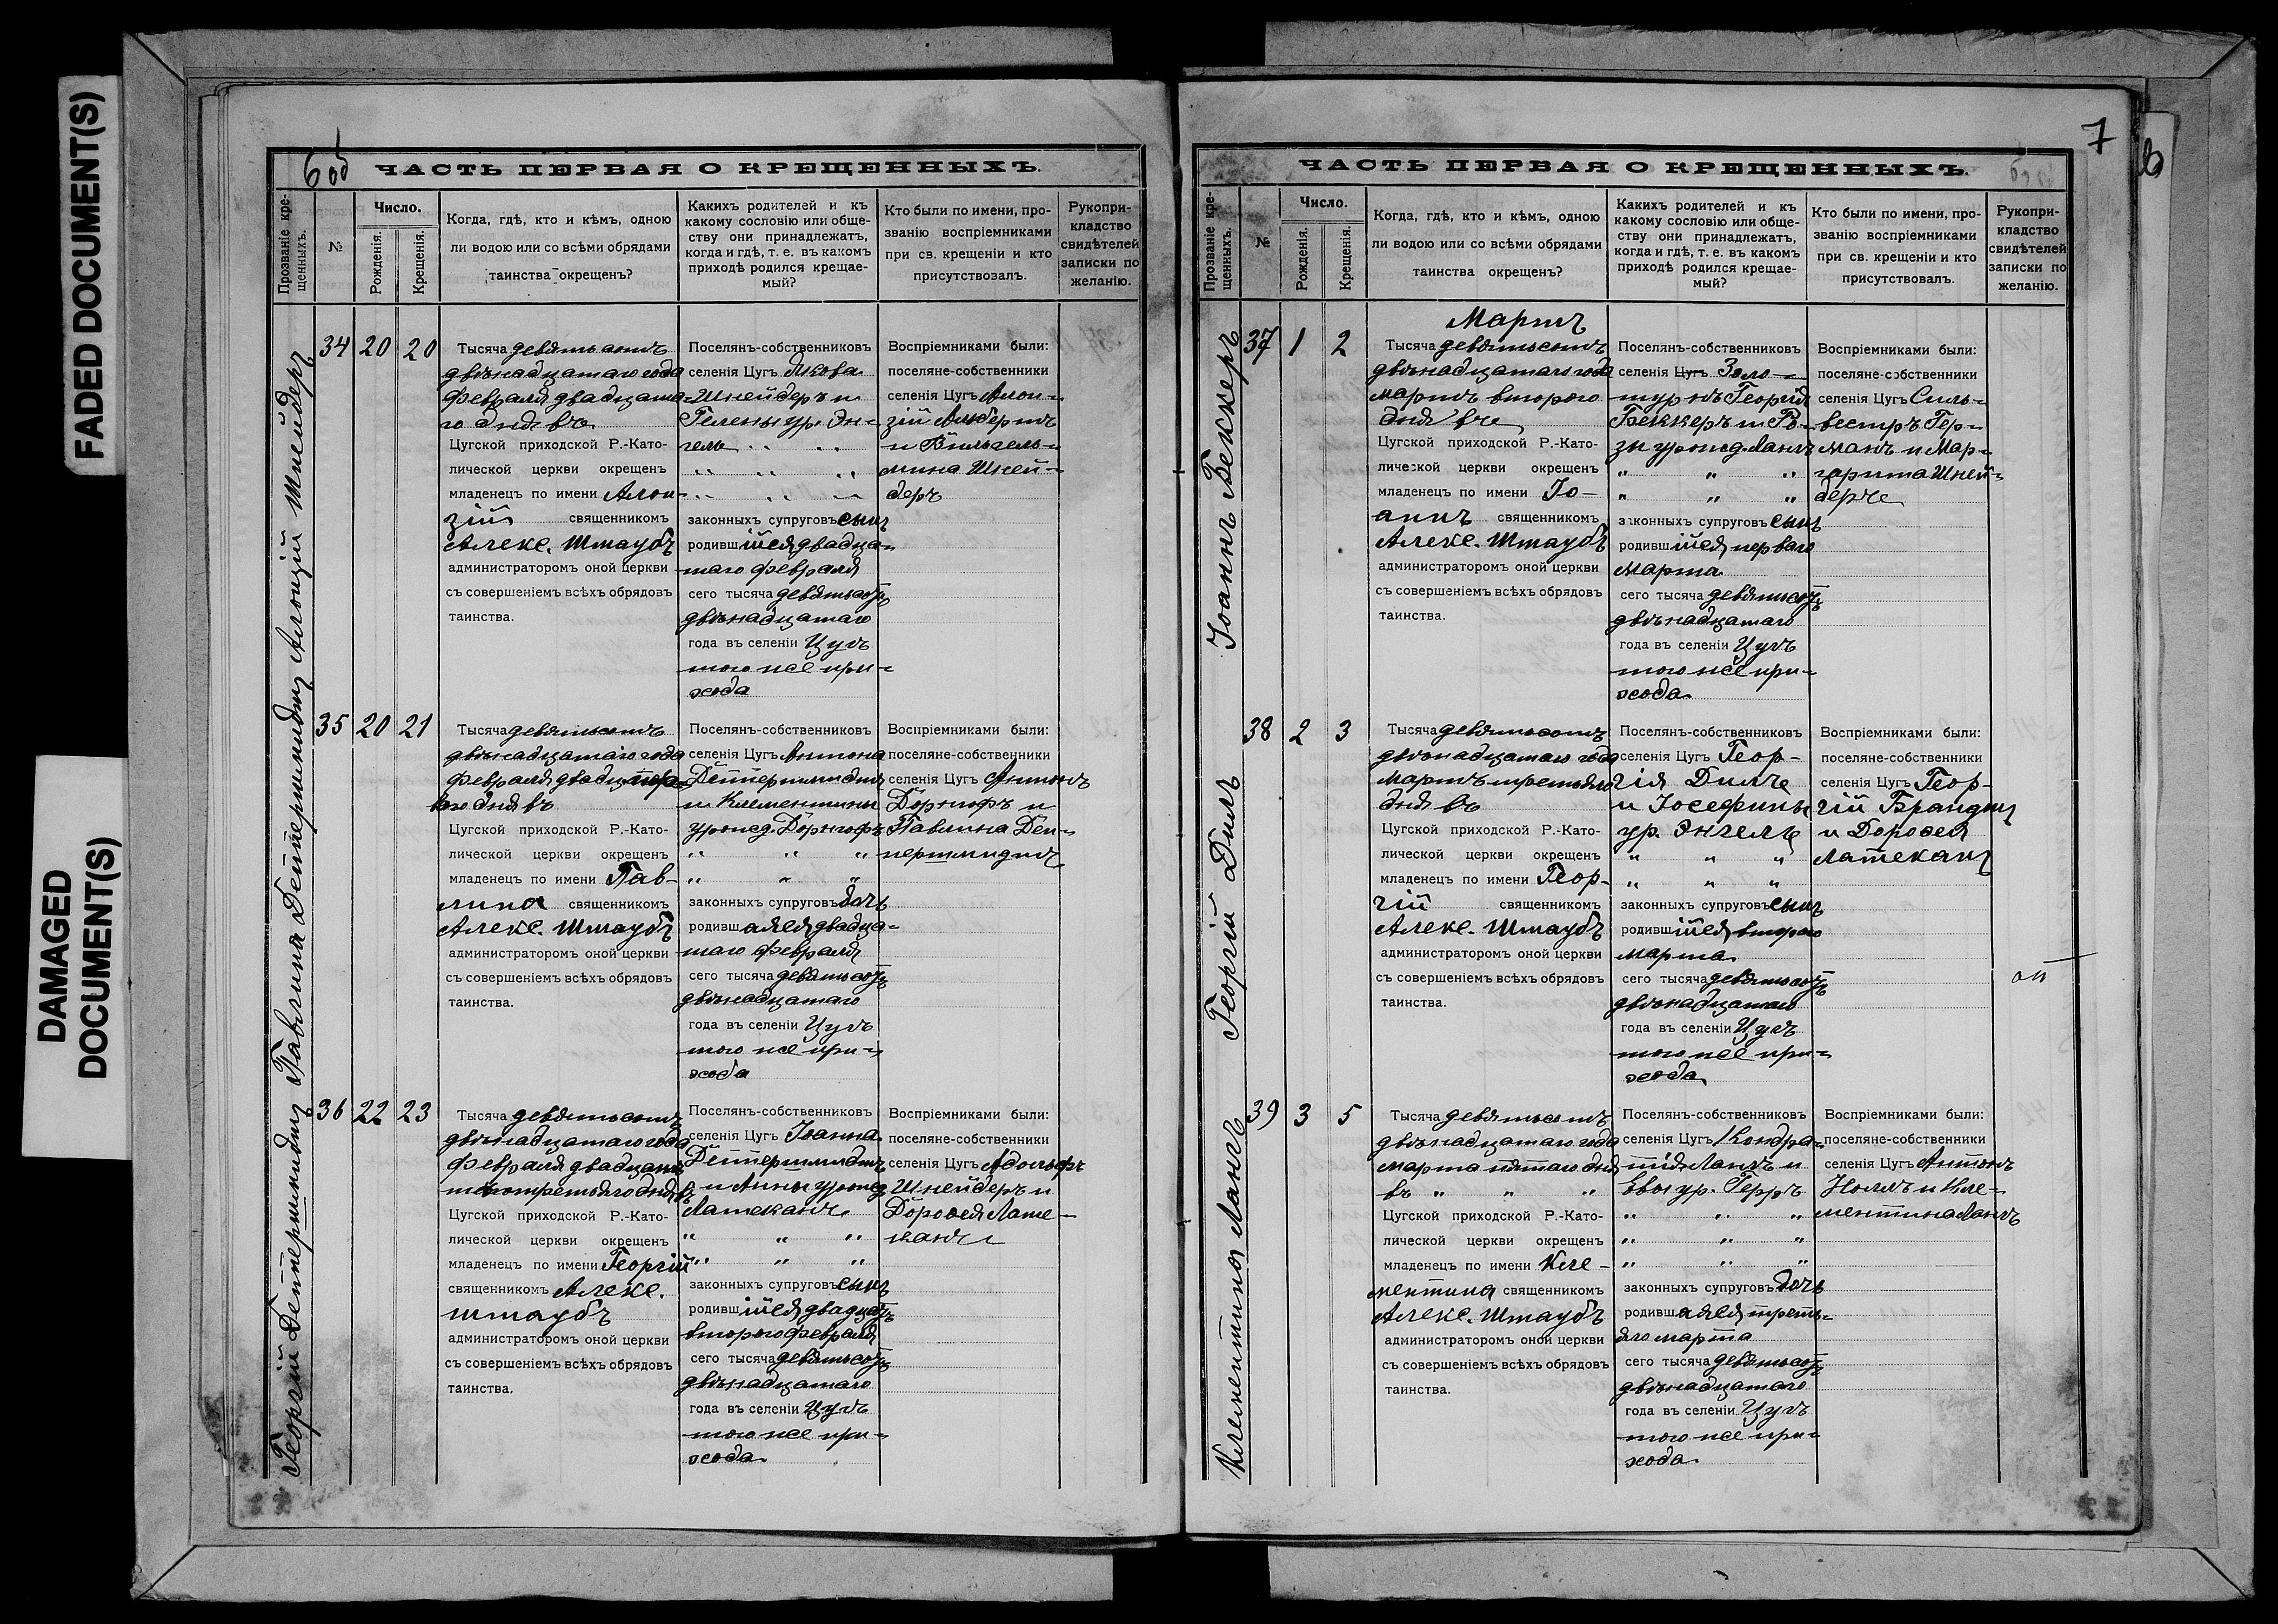 FADED DOCUMENT(S)
DAMAGED
DOCUMENT(S)
6 об
ЧАСТЬ ПЕРВАЯ О КРЕЩЕННЫХЪ.
Прозваніе кре-
щенныхъ.
№
Число.
Рожденія.
Крещенія.
Когда, гдѣ, кто и кѣмъ, одною
ли водою или со всѣми обрядами
таинства окрещенъ?
Какихъ родителей и къ
какому сословію или обще-
ству они принадлежатъ,
когда и гдѣ, т. е. въ какомъ
приходѣ родился крещае-
мый?
Кто были по имени, про-
званію воспріемниками
при св. крещеніи и кто
присутствовалъ.
Рукопри-
кладство
свидѣтелей
записки по
желанію.
Алоизій Шнейдеръ
34 20 20
Тысяча девятьсотъ
двѣнадцатаго года
февраля двадцата-
го дня въ
Цугской приходской Р.-Като-
лической церкви окрещенъ
младенецъ по имени Алои-
зій священникомъ
Алекс. Штаубъ
администраторомъ оной церкви
съ совершеніемъ всѣхъ обрядовъ
таинства.
Поселянъ-собственниковъ
селенія Цугъ Якова
Шнейдеръ и
Гелены ур. Эн-
гель
законныхъ супруговъ сынъ
родившійся двадца-
таго февраля
сего тысяча девятьсотъ
двѣнадцатаго
года въ селеніи Цугъ
того же при-
хода
Воспріемниками были:
поселяне-собственники
селенія Цугъ Алои-
зій Альбертъ
и Вильгель-
мина Шней-
деръ
Павлина Деппершмидтъ
35 20 21
Тысяча девятьсотъ
двѣнадцатаго года
февраля двадцать пер-
ваго дня въ
Цугской приходской Р.-Като-
лической церкви окрещенъ
младенецъ по имени Пав-
лина священникомъ
Алекс. Штаубъ
администраторомъ оной церкви
съ совершеніемъ всѣхъ обрядовъ
таинства.
Поселянъ-собственниковъ
селенія Цугъ Антона
Деппершмидтъ
и Клементины
урожд. Дорнгофъ
" " "
" " "
законныхъ супруговъ дочь
родившаяся двадца-
таго февраля
сего тысяча девятьсотъ
двѣнадцатаго
года въ селеніи Цугъ
того же при-
хода
Воспріемниками были:
поселяне-собственники
селенія Цугъ Антонъ
Дорнгофъ и
Павлина Деп-
першмидтъ
Георгій Деппершмидтъ
36 22 23
Тысяча девятьсотъ
двѣнадцатаго года
февраля двадцать
третьяго дня въ
Цугской приходской Р.-Като-
лической церкви окрещенъ
младенецъ по имени Георгій
священникомъ Алекс.
Штаубъ
администраторомъ оной церкви
съ совершеніемъ всѣхъ обрядовъ
таинства.
Поселянъ-собственниковъ
селенія Цугъ Іоанна
Деппершмидтъ
и Анны урожд.
Латеканъ
" " "
" " "
законныхъ супруговъ сынъ
родившійся двадцать
второго февраля
сего тысяча девятьсотъ
двѣнадцатаго
года въ селеніи Цугъ
того же при-
хода.
Воспріемниками были:
поселяне-собственники
селенія Цугъ Адольфъ
Шнейдеръ и
Доровея Лате-
канъ
7
ЧАСТЬ ПЕРВАЯ О КРЕЩЕННЫХЪ.
Прозваніе кре-
щенныхъ.
№
Число.
Рожденія.
Крещенія.
Когда, гдѣ, кто и кѣмъ, одною
ли водою или со всѣми обрядами
таинства окрещенъ?
Какихъ родителей и къ
какому сословію или обще-
ству они принадлежатъ,
когда и гдѣ, т. е. въ какомъ
приходѣ родился крещае-
мый?
Кто были по имени, про-
званію воспріемниками
при св. крещеніи и кто
присутствовалъ.
Рукопри-
кладство
свидѣтелей
записки по
желанію.
Мартъ
Іоаннъ Беккеръ
37 1 2
Тысяча девятьсотъ
двѣнадцатаго года
мартъ второго
дня въ
Цугской приходской Р.-Като-
лической церкви окрещенъ
младенецъ по имени Іо-
аннъ священникомъ
Алекс. Штаубъ
администраторомъ оной церкви
съ совершеніемъ всѣхъ обрядовъ
таинства.
Поселянъ-собственниковъ
селенія Цугъ Золо-
турнъ Георгія
Беккеръ и Ро-
зы урожд. Лангъ
" " "
" " "
законныхъ супруговъ сынъ
родившійся перваго
марта
сего тысяча девятьсотъ
двѣнадцатаго
года въ селеніи Цугъ
того же при-
хода.
Воспріемниками были:
поселяне-собственники
селенія Цугъ Силь-
вестръ Гер-
манъ и Мар-
гарита Шней-
деръ
Георгій Диль
38 2 3
Тысяча девятьсотъ
двѣнадцатаго года
мартъ третьяго
дня въ
Цугской приходской Р.-Като-
лической церкви окрещенъ
младенецъ по имени Геор-
гій священникомъ
Алекс. Штаубъ
администраторомъ оной церкви
съ совершеніемъ всѣхъ обрядовъ
таинства.
Поселянъ-собственниковъ
селенія Цугъ Геор-
гія Диль
и Іосефины
ур. Энгель
" " "
" " "
законныхъ супруговъ сынъ
родившійся второго
марта
сего тысяча девятьсотъ
двѣнадцатаго
года въ селеніи Цугъ
того же при-
хода
Воспріемниками были:
поселяне-собственники
селенія Цугъ Геор-
гій Брандтъ
и Доровея
Латеканъ
Клементина Лангъ
39 3 5
Тысяча девятьсотъ
двѣнадцатаго года
марта пятаго дня
въ " " "
Цугской приходской Р.-Като-
лической церкви окрещенъ
младенецъ по имени Кле-
ментина священникомъ
Алекс. Штаубъ
администраторомъ оной церкви
съ совершеніемъ всѣхъ обрядовъ
таинства.
Поселянъ-собственниковъ
селенія Цугъ Кондра-
тія Лангъ и
Евы ур. Герръ
" " "
" " "
" " "
законныхъ супруговъ дочь
родившаяся треть-
яго марта
сего тысяча девятьсотъ
двѣнадцатаго
года въ селеніи Цугъ
того же при-
хода.
Воспріемниками были:
поселяне-собственники
селенія Цугъ Антонъ
Ноллъ и Кле-
ментина Лангъ